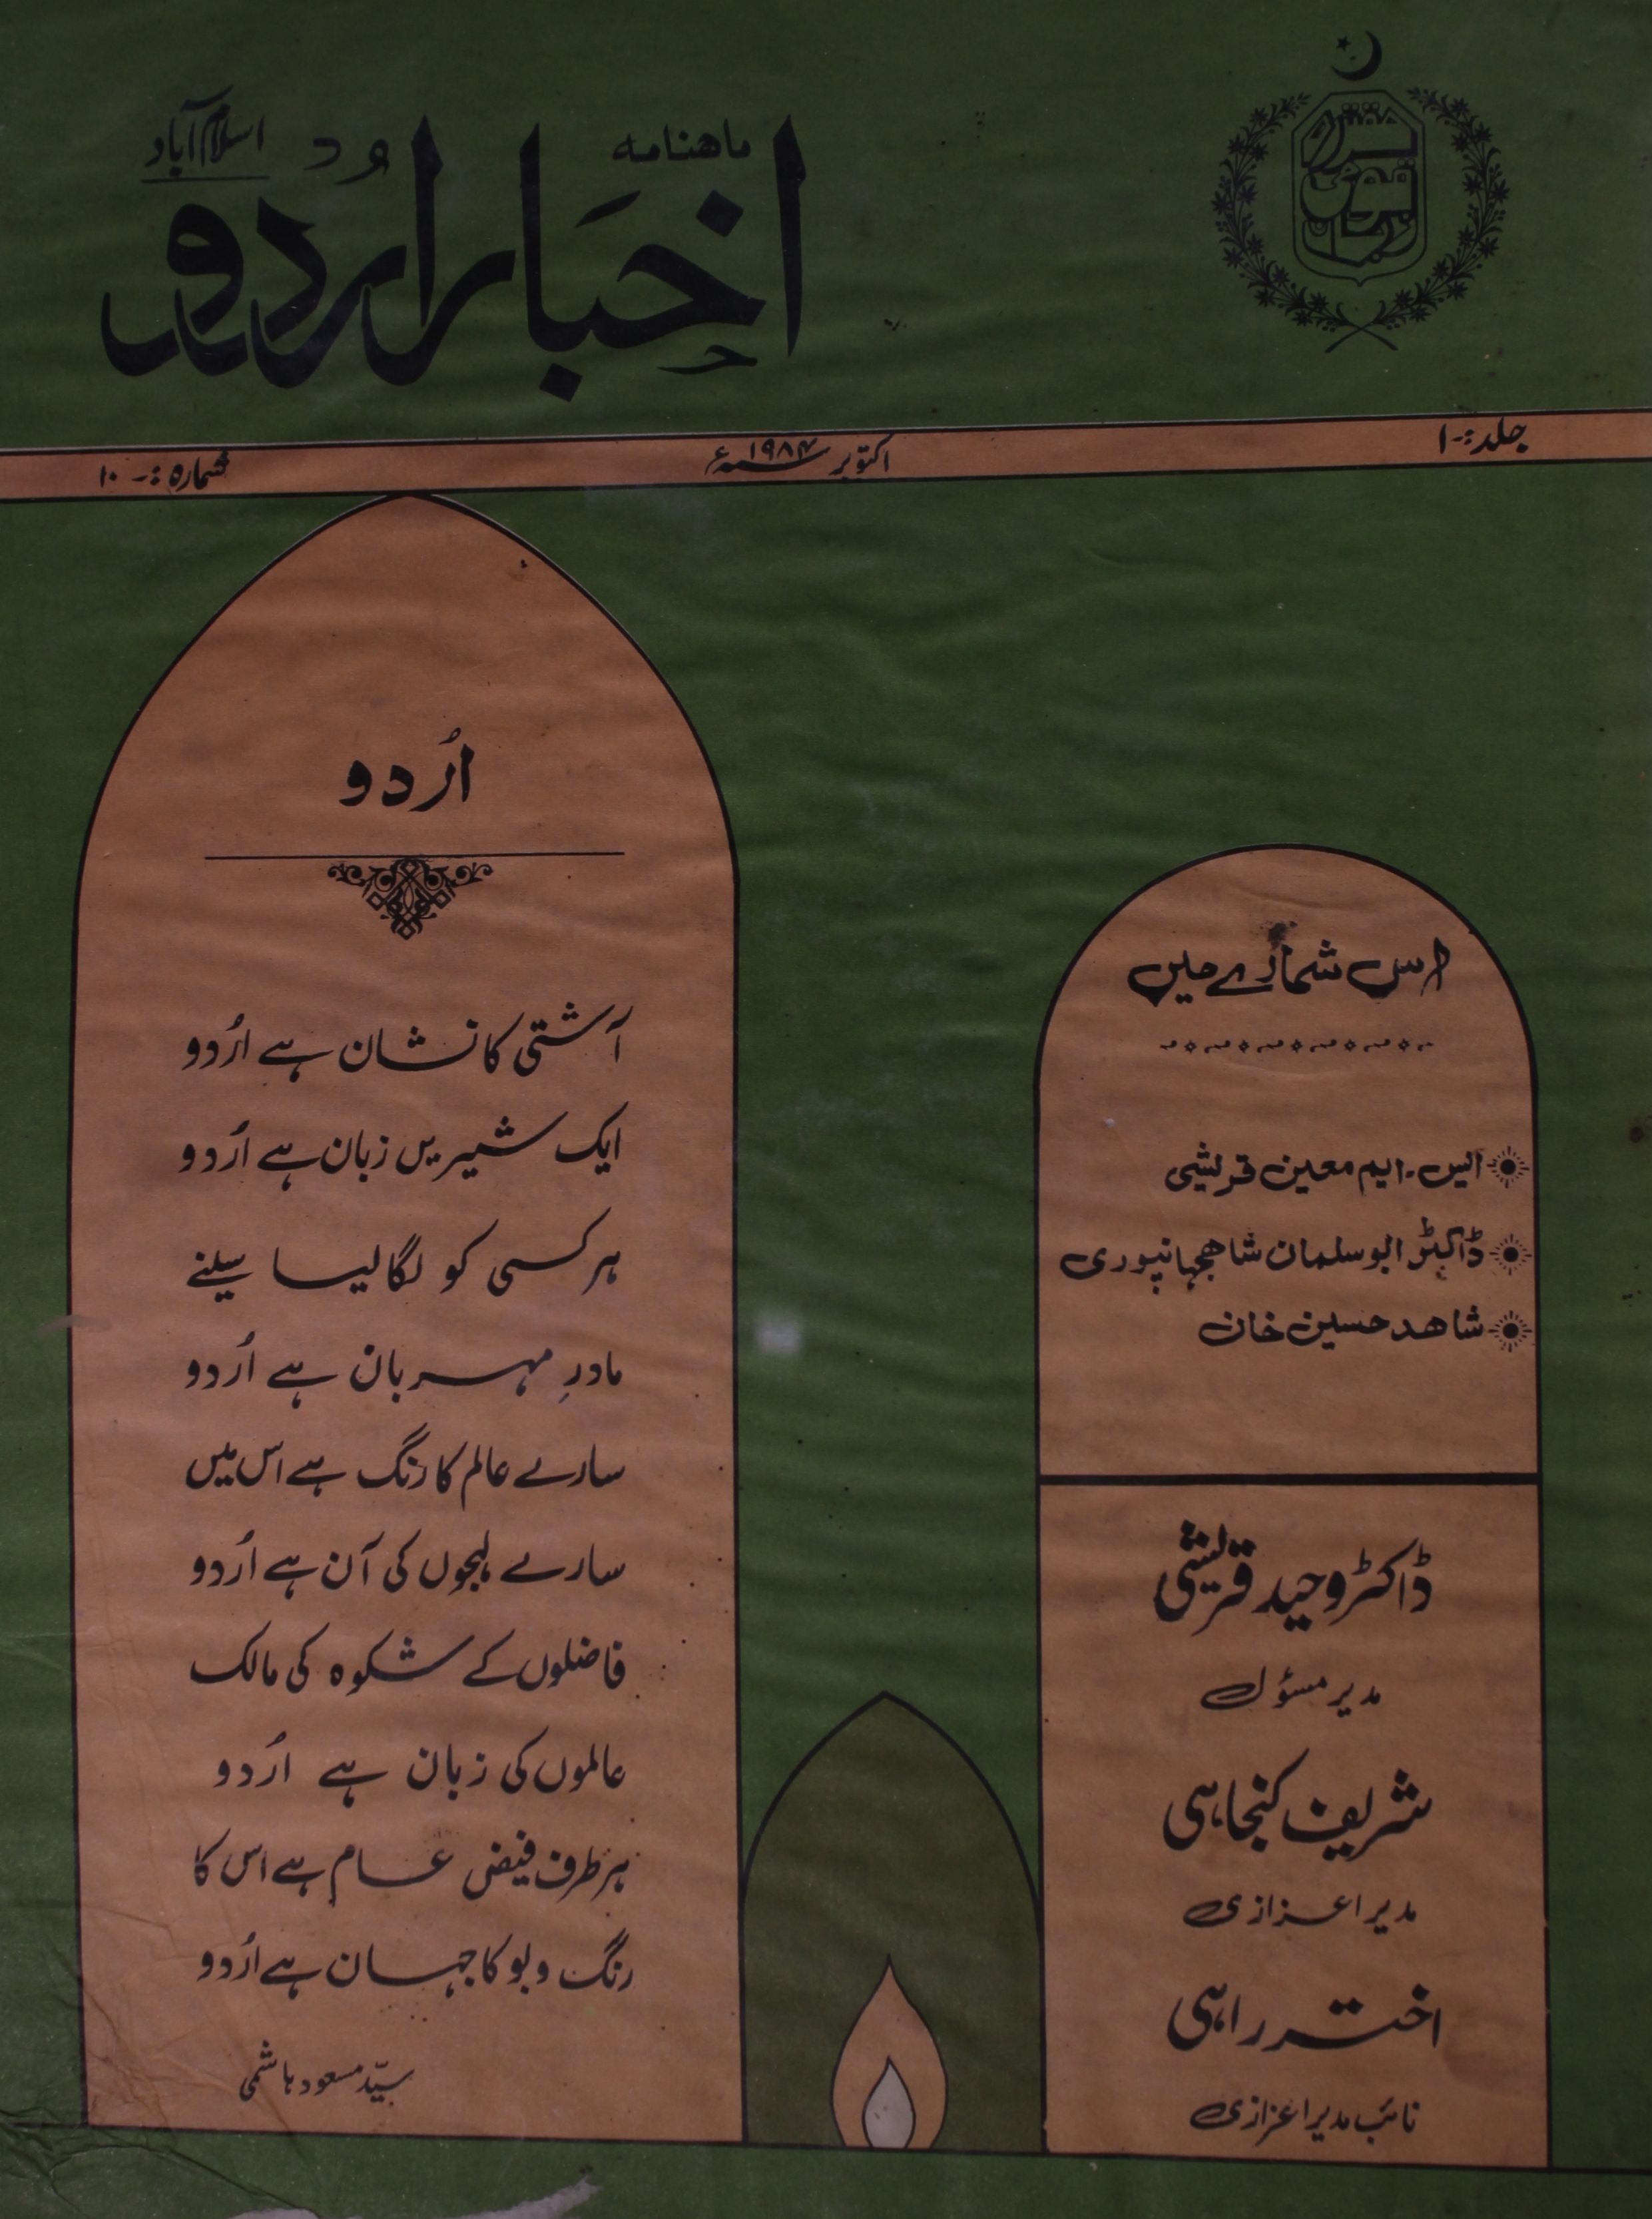 مقتدرہ
قومی
زبان
ماهنامه
اخبَار اُردو
اسلام آباد
جلد :- ۱
اکتوبر ۱۹۸۴ء
شمارہ :- ۱۰
اُردو
آشتی کا نشان ہے اُردو
ایک شیریں زبان ہے اُردو
ہر کسی کو لگا لیا سینے
مادرِ مہربان ہے اُردو
سارے عالم کا رنگ ہے اس میں
سارے لہجوں کی آن ہے اُردو
فاضلوں کے شکوہ کی مالک
عالموں کی زبان ہے اُردو
ہر طرف فیض عام ہے اس کا
رنگ و بو کا جہان ہے اُردو
سیّد مسعود ہاشمی
اس شمارے میں
ایس۔ایم معین قریشی
ڈاکٹر ابو سلمان شاهجهانپوری
شاهد حسین خان
ڈاکٹر وحید قریشی
مدیر مسؤل
شریف کنجاہی
مدیر اعزازی
اختر راہی
نائب مدیر اعزازی